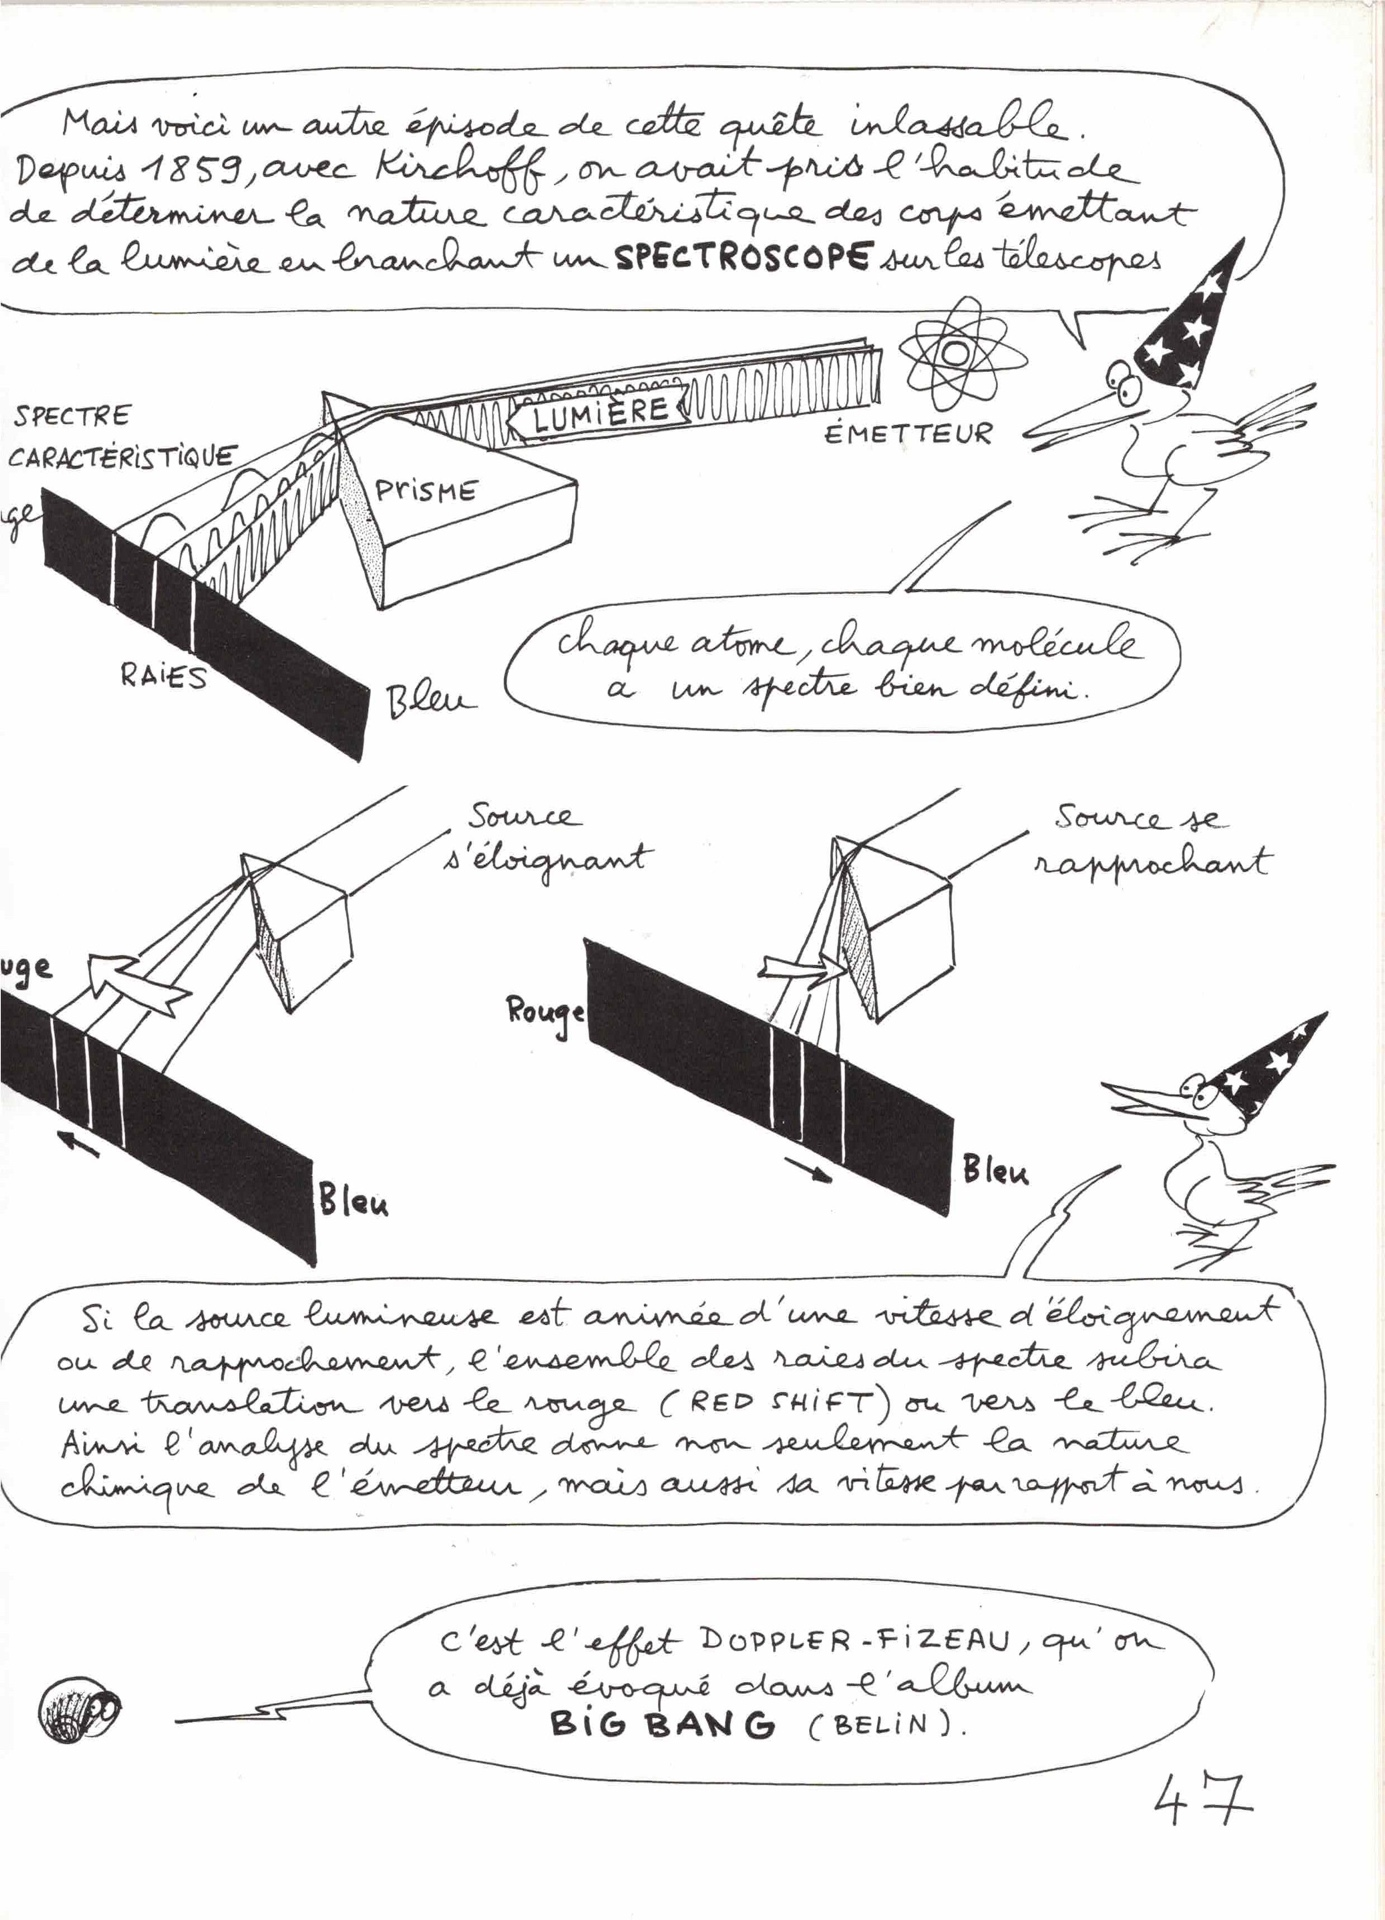 Mais voici un autre épisode de cette quête inlassable.
Depuis 1859, avec Kirchoff, on avait pris l'habitude
de déterminer la nature caractéristique des corps émettant
de la lumière en branchant un SPECTROSCOPE sur les télescopes
LUMIÈRE
ÉMETTEUR
SPECTRE
CARACTÉRISTIQUE
PRISME
uge
RAIES
Bleu
chaque atome, chaque molécule
a un spectre bien défini.
Source
s'éloignant
Source se
rapprochant
uge
Rouge
Bleu
Bleu
Si la source lumineuse est animée d'une vitesse d'éloignement
ou de rapprochement, l'ensemble des raies du spectre subira
une translation vers le rouge (RED SHIFT) ou vers le bleu.
Ainsi l'analyse du spectre donne non seulement la nature
chimique de l'émetteur, mais aussi sa vitesse par rapport à nous.
C'est l'effet DOPPLER-FIZEAU, qu'on
a déjà évoqué dans l'album
BIG BANG (BELIN).
47